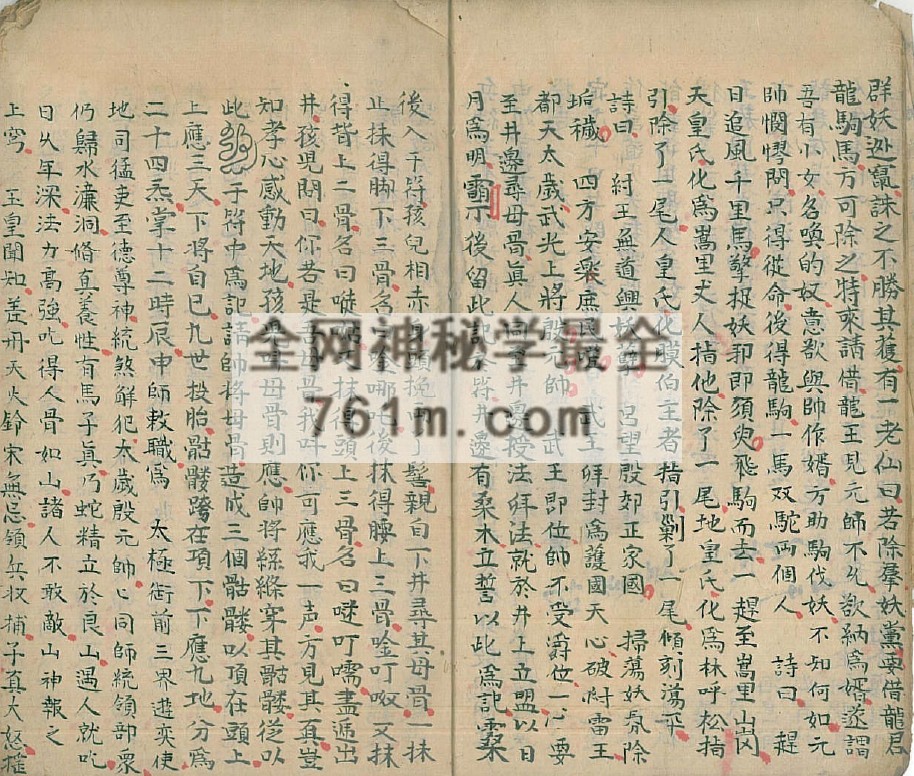 群妖迯竄誅之不勝其獲有一老仙曰若除羣妖黨要借龍君
龍駒馬方可除之特來請借龍王見元師不允欲納為婿遂謂
吾有小女名喚的奴意欲與帥作婿方助駒伐妖不知何如元
帥憫懰問只得從命後得龍駒一馬双駝両個人 詩曰 趕
日追風千里馬擎捉妖邪即須臾飛駒而去一趕至嵩里山崗
天皇氏化為嵩里丈人指他除了一尾地皇氏化為林呼松指
引除了一尾人皇氏化 膜伯主者指引剿了一尾傾刻蕩平
詩曰 紂王無道興妖孽 呂望殷郊正家國 掃蕩妖氛除
垢穢 四方安樂庶民 武王拜封為護國天心破尉雷王
都天太歲武光上將殷元帥 武王即位帥不受爵位一心要
至井邊尋母骨真人同了井邊授法拜法就於井上立盟以日
月為明 後留此 符井邊有桑木立誓以此為記
後入手符孩兒相赤 頭挽 了髻親自下井尋其母骨一抹
止抹得脚下三骨名 唫哪吒後抹得腰上三骨唫叮呶又抹
得背上二骨名曰 抹得頭上三骨名曰唛叮嚅盡逓出
井孩児問曰你若是吾母骨我叫你可應我一声方見其真豈
知孝心感動天地孩 母骨則應帥將絲縧穿其骷髏從以
此 于符中為記請帥將母骨造成三個骷髏以頂在頭上
上應三天下將自已九世投胎骷髏跨在項下下應九地分為
二十四炁掌十二時辰申師敕職為 太極衙前三界遊奕使
地司猛吏至德尊神統煞解犯太歲殷元帥心同師統領部衆
仍歸水濂洞脩真養性有馬子真乃蛇精立於良山遇人就吃
日久年深法力高強吃得人骨如山諸人不敢敵山神報之
上穹 玉皇聞知差丹天火鈴宋無忌領兵收捕子真大怒摧
全网神秘学最全
761m.com